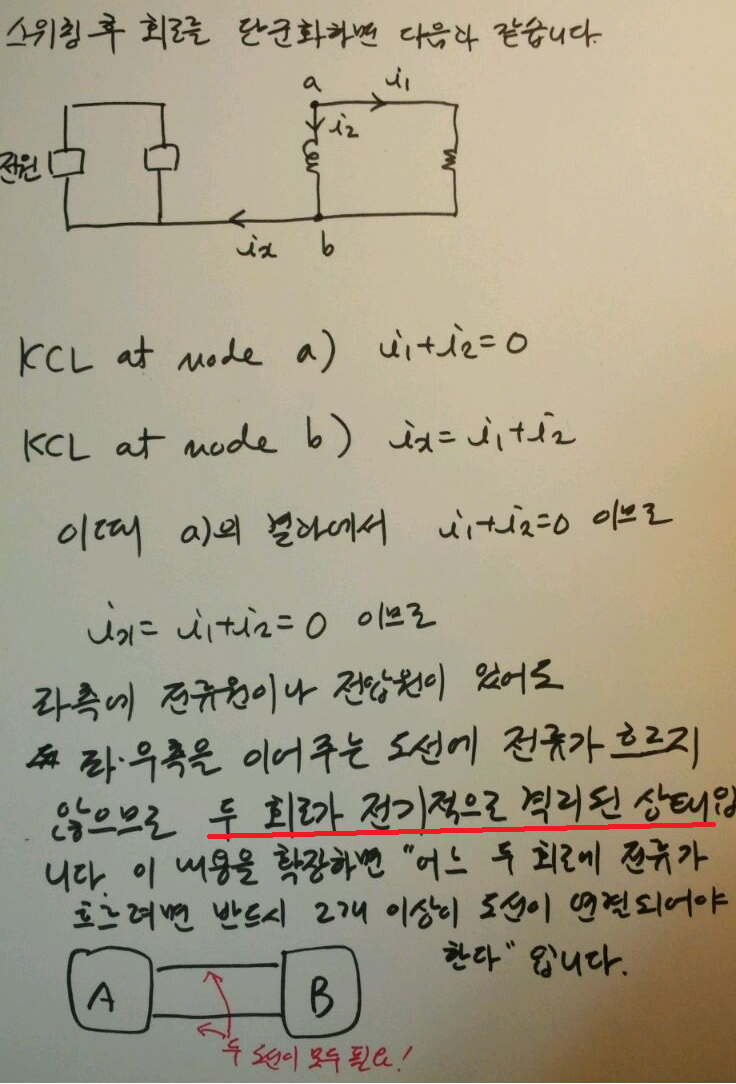 스위칭 후 회로를 단순화하면 다음과 같습니다.
a i₁
i₂
전원
iₓ b
KCL at node a) i₁+i₂=0
KCL at node b) iₓ=i₁+i₂
이때 a)의 결과에서 i₁+i₂=0 이므로
iₓ= i₁+i₂=0 이므로
좌측에 전류원이나 전압원이 있어도
좌·우측을 이어주는 도선에 전류가 흐르지
않으므로 두 회로가 전기적으로 격리된 상태입
니다. 이 내용을 확장하면 "어느 두 회로에 전류가
흐르려면 반드시 2개 이상의 도선이 연결되어야
한다" 입니다.
A B
두 도선이 모두 필요!